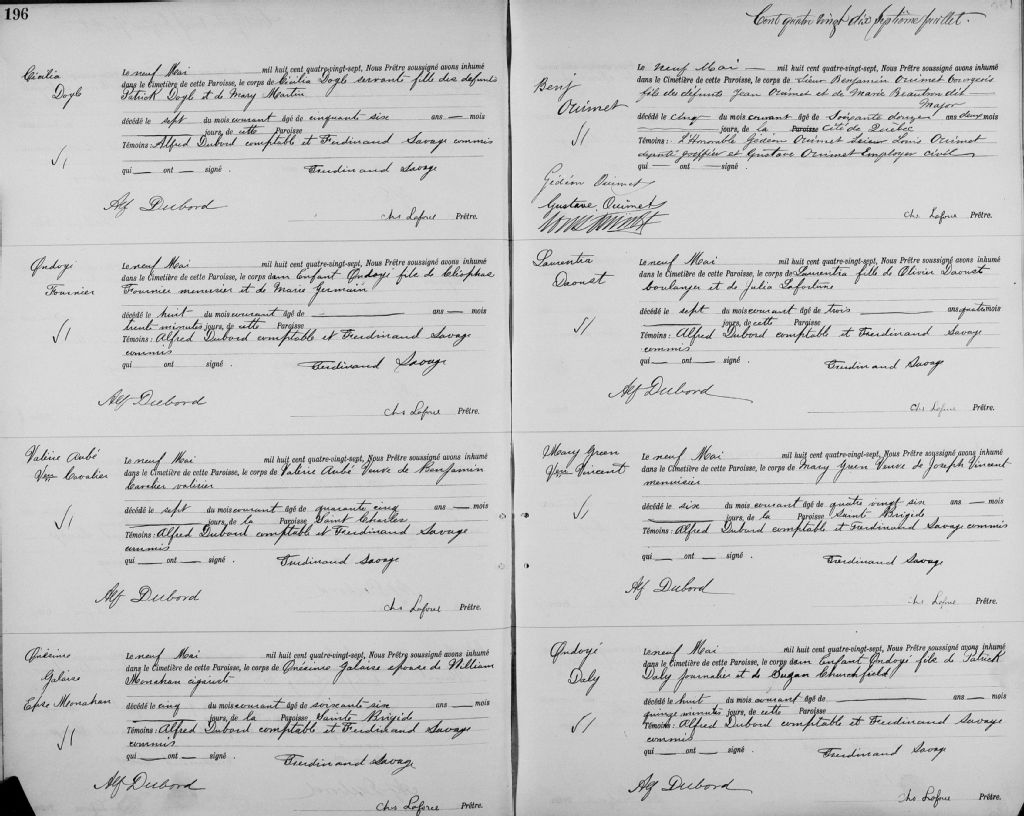 196
Cicilia
Doyle
Le neuf Mai mil huit cent quatre-vingt-sept, Nous Prêtre soussigné avons inhumé
dans le Cimetière de cette Paroisse, le corps de Cicilia Doyle servante fille des défunts
Patrick Doyle et de Mary Martin
décédé le sept du mois courant âgé de cinquante six ans — mois
jours, de cette Paroisse
Témoins : Alfred Dubord comptable et Ferdinand Savage commis
qui — ont — signé . Ferdinand Savage
Alf Dubord
Chs Laforce Prêtre.
Ondoyé
Fournier
Le neuf Mai mil huit cent quatre-vingt-sept, Nous Prêtre soussigné avons inhumé
dans le Cimetière de cette Paroisse, le corps d'un Enfant Ondoyé fils de Cléophas
Fournier menuisier et de Marie Germain
décédé le huit du mois courant âgé de — ans — mois
trente minutes jours, de cette Paroisse
Témoins : Alfred Dubord comptable et Ferdinand Savage
commis
qui — ont — signé . Ferdinand Savage
Alf Dubord
Chs Laforce Prêtre.
Valérie Aubé
Vve Cavalier
Le neuf Mai mil huit cent quatre-vingt-sept, Nous Prêtre soussigné avons inhumé
dans le Cimetière de cette Paroisse, le corps de Valérie Aubé Veuve de Benjamin
Cavalier
décédé le sept du mois courant âgé de quarante cinq ans — mois
jours, de la Paroisse Saint Charles
Témoins : Alfred Dubord comptable et Ferdinand Savage
commis
qui — ont — signé . Ferdinand Savage
Alf Dubord
Chs Laforce Prêtre.
Onésime
Galaise
Epse Monahan
Le neuf Mai mil huit cent quatre-vingt-sept, Nous Prêtre soussigné avons inhumé
dans le Cimetière de cette Paroisse, le corps de Onésime Galaise épouse de William
Monahan cigariste
décédé le cinq du mois courant âgé de soixante six ans — mois
jours, de la Paroisse Sainte Brigide
Témoins : Alfred Dubord comptable et Ferdinand Savage
commis
qui — ont — signé . Ferdinand Savage
Alf Dubord
Chs Laforce Prêtre.
Cent quatre vingt dix septième feuillet.
Benj
Ouimet
Le neuf Mai — mil huit cent quatre-vingt-sept, Nous Prêtre soussigné avons inhumé
dans le Cimetière de cette Paroisse, le corps de Sieur Benjamin Ouimet bourgeois
fils des défunts Jean Ouimet et de Marie Beautron dit
Major
décédé le cinq du mois courant âgé de Soixante douze ans deux mois
jours, de la Paroisse Cité de Québec
Témoins : L'Honorable Gédéon Ouimet Sieur Louis Ouimet
député greffier et Gustave Ouimet Employer civil
Gédéon Ouimet
Gustave Ouimet
Louis Ouimet
Chs Laforce Prêtre.
Laurentia
Daoust
Le neuf Mai mil huit cent quatre-vingt-sept, Nous Prêtre soussigné avons inhumé
dans le Cimetière de cette Paroisse, le corps de Laurentia fille de Olivier Daoust
boulanger et de Julia Lafortune
décédé le sept du mois courant âgé de trois — ans quatre mois
jours, de cette Paroisse
Témoins : Alfred Dubord comptable et Ferdinand Savage
commis
qui — ont — signé . Ferdinand Savage
Alf Dubord
Chs Laforce Prêtre.
Mary Green
Vve Vincent
Le neuf Mai mil huit cent quatre-vingt-sept, Nous Prêtre soussigné avons inhumé
dans le Cimetière de cette Paroisse, le corps de Mary Green Veuve de Joseph Vincent
menuisier
décédé le six du mois courant âgé de quatre vingt six ans — mois
jours, de la Paroisse Sainte Brigide
Témoins : Alfred Dubord comptable et Ferdinand Savage commis
qui — ont — signé . Ferdinand Savage
Alf Dubord
Chs Laforce Prêtre.
Ondoyé
Daly
Le neuf Mai mil huit cent quatre-vingt-sept, Nous Prêtre soussigné avons inhumé
dans le Cimetière de cette Paroisse, le corps d'un Enfant Ondoyé fils de Patrick
Daly journalier et de Susan Churchfield
décédé le huit du mois courant âgé de — ans — mois
quinze minutes jours, de cette Paroisse
Témoins : Alfred Dubord comptable et Ferdinand Savage
commis
qui — ont — signé . Ferdinand Savage
Alf Dubord
Chs Laforce Prêtre.